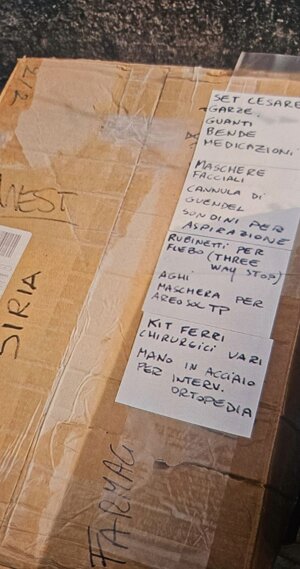 2/2
SET CESARE
GARZE.
GUANTI
BENDE
MEDICAZIONI
MASCHERE
FACCIALI
CANNULA DI
GUENDEL
SONDINI PER
ASPIRAZIONE
RUBINETTI PER
FLEBO (THREE
WAY STOP)
AGHI
MASCHERA PER
AREOSOL TP
KIT FERRI
CHIRURGICI VARI
MANO IN ACCIAIO
PER INTERV.
ORTOPEDIA
SIRIA
FARMAC